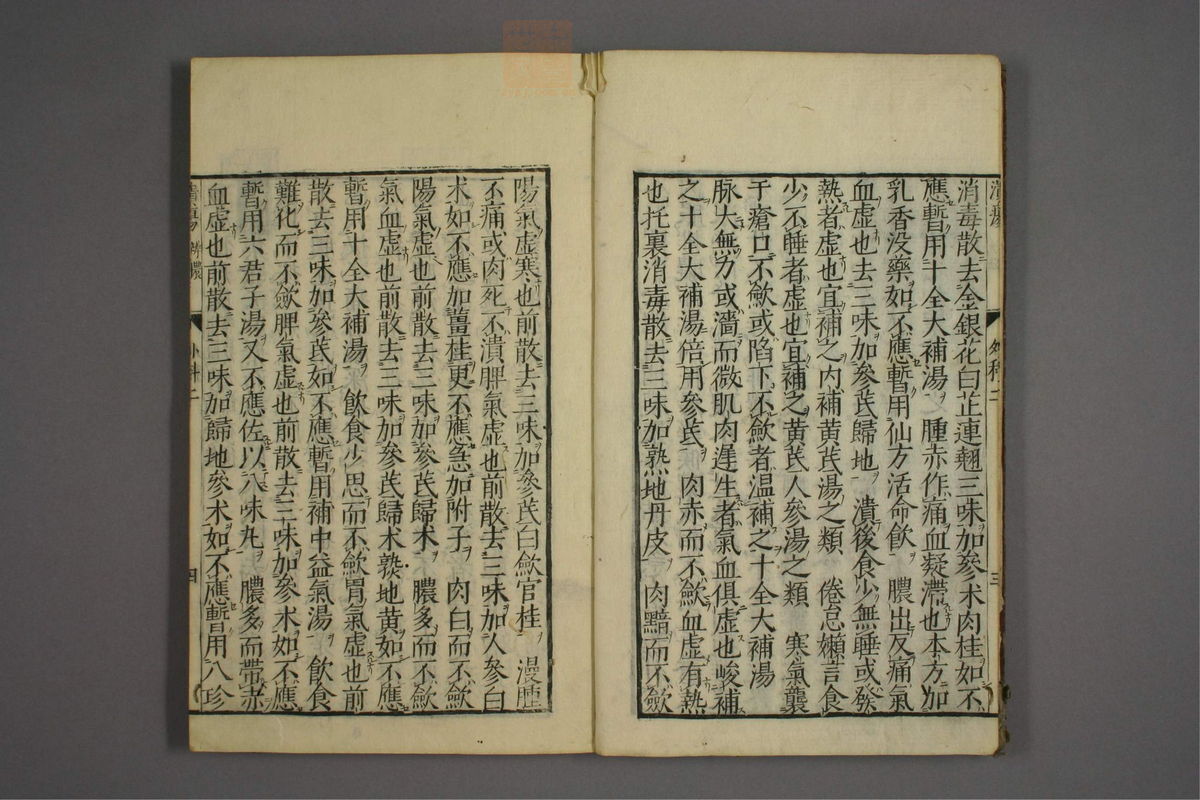 消毒散去金銀花白芷連翹三味加參术肉桂如不
應暫用十全大補湯　腫赤作痛血凝滯也本方加
乳香没藥如不應暫用仙方活命飲　膿出反痛氣
血虛也去三味加參芪歸地　潰後食少無睡或發
熱者虛也宜補之内補黄芪湯之類　倦怠嬾言食
少不睡者虛也宜補之黄芪人參湯之類　寒氣襲
于瘡口不斂或陷下不斂者温補之十全大補湯
脉大無力或濇而微肌肉遲生者氣血俱虛也峻補
之十全大補湯倍用參芪　肉赤而不斂血虛有熱
也托裏消毒散去三味加熟地丹皮　肉黯而不斂
外科二
三
陽氣虛寒也前散去三味加參芪白斂官桂　漫腫
不痛或肉死不潰脾氣虛也前散去三味加人參白
术如不應加薑桂更不應急加附子　肉白而不斂
陽氣虛也前散去三味加參芪歸术　膿多而不斂
氣血虛也前散去三味加參芪歸术熟地黄如不應
暫用十全大補湯　飲食少思而不斂胃氣虛也前
散去三味加參芪如不應暫用補中益氣湯　飲食
難化而不斂脾氣虛也前散去三味加參术如不應
暫用六君子湯又不應佐以八味丸　膿多而帶赤
血虛也前散去三味加歸地參术如不應暫用八珍
外科二
四